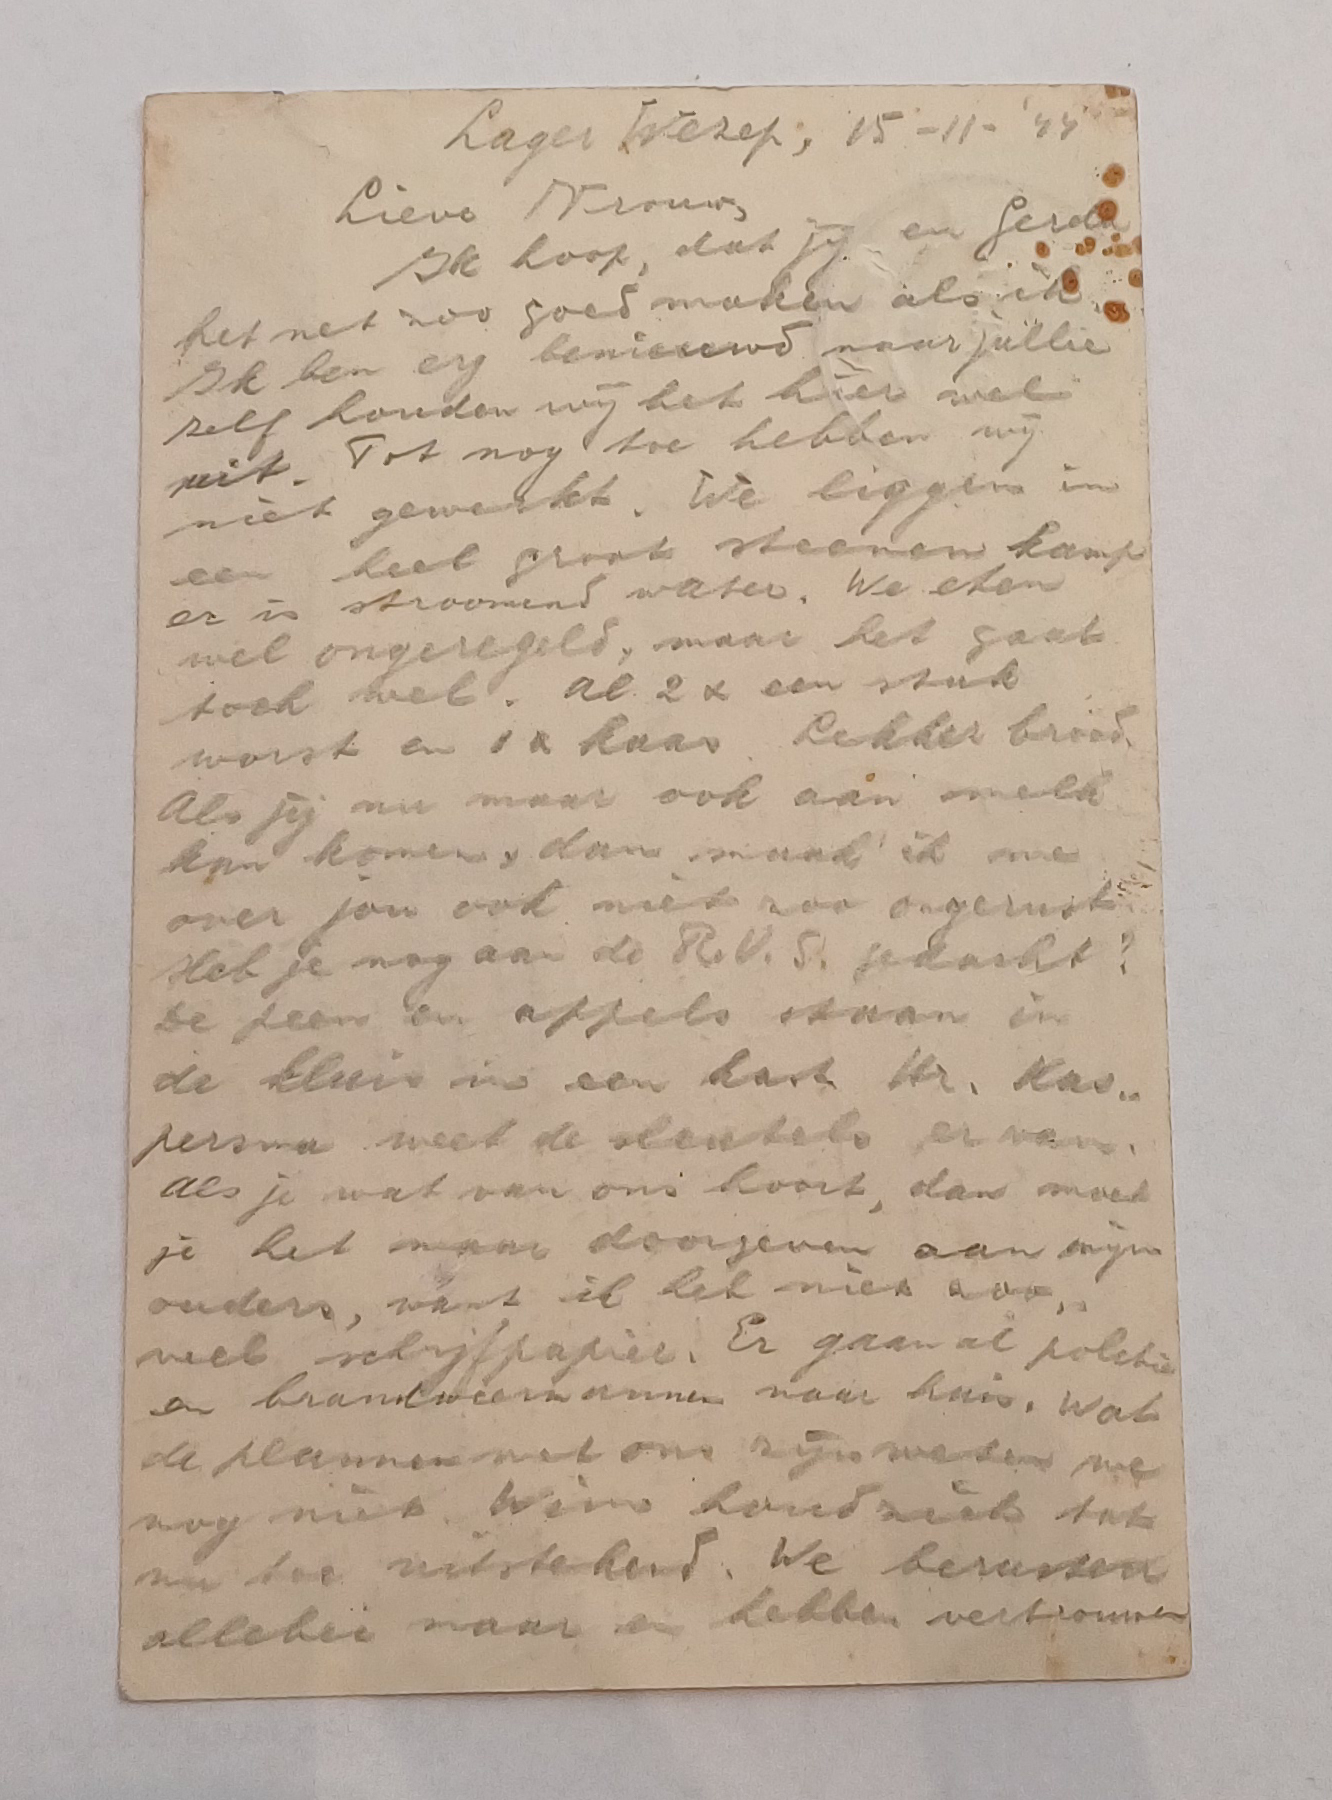 Lager Wezep, 15-11-'44
Lieve Vrouw,
Ik hoop, dat jij en Gerda
het net zoo goed maken als ik.
Ik ben erg benieuwd naar jullie
zelf houden wij het hier wel
uit. Tot nog toe hebben wij
niet gewerkt. We liggen in
een heel groot steenen kamp
er is stroomend water. We eten
wel ongeregeld, maar het gaat
toch wel. Al 2 x een stuk
worst en 1 x kaas. Lekker brood.
Als jij nu maar ook aan melk
kan komen, dan maak ik me
over jou ook niet zoo ongerust.
Heb je nog aan de R.V.S. gedacht?
De peen en appels staan in
de kluis in een kast. Hr. Kas..
persma weet de sleutels er van.
Als je wat van ons hoort, dan moet
je het maar doorgeven aan mijn
ouders, want ik heb niet zoo..
veel schrijfpapier. Er gaan al politie
en brandweermannen naar huis. Wat
de plannen met ons zijn weten we
nog niet. Wim houd zich tot
nu toe uitstekend. We berusten
allebei maar en hebben vertrouwen